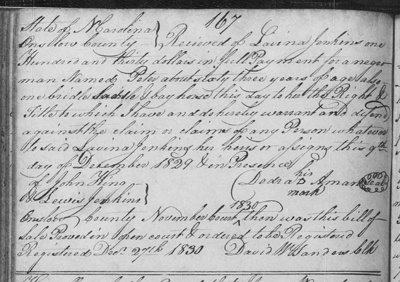 167
State of N Carolina
Onslow County } Received of Lavina Jenkins one
Hundred and thirty dollars in full Payment for a negro
man Named Pete about sixty three years of age also
one bridle Saddle & bay horse this day to her the Right &
Title which I have and do hereby warrant and defend
against the claim or claims of any Person whatever
the said Lavina Jenkins her heirs or assigns this 9th
day of December 1829 & in Presence
of John King his
Lewis Jenkins mark Seal
Onslow County November Court 1830 then was this bill of
Sale Proved in open court & ordered to be Registered
Registered Decr 27th 1830 David W Sanders clk